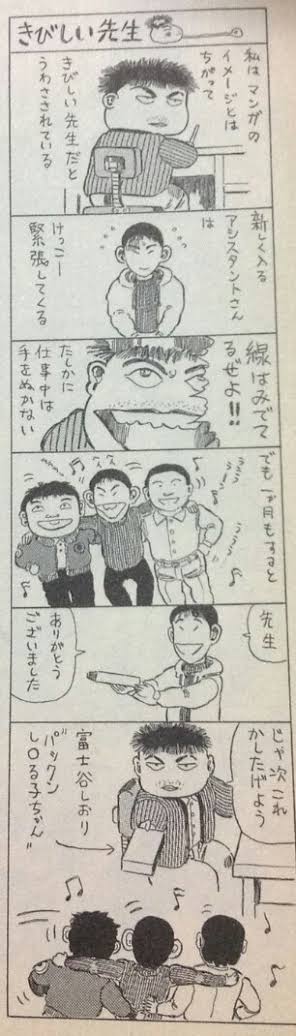 きびしい先生
私はマンガの
イメージとは
ちがって
きびしい先生だと
うわさされている
新しく入る
アシスタントさん
は
けっこー
緊張してくる
線はみでて
るぜよ!!
たしかに
仕事中は
手をぬかない
でも一ヶ月もすると
ララララ〜
ラララ〜
先生
ありがとう
ございました
じゃ次これ
かしたげよう
富士谷しおり
"バックン
しロる子ちゃん"